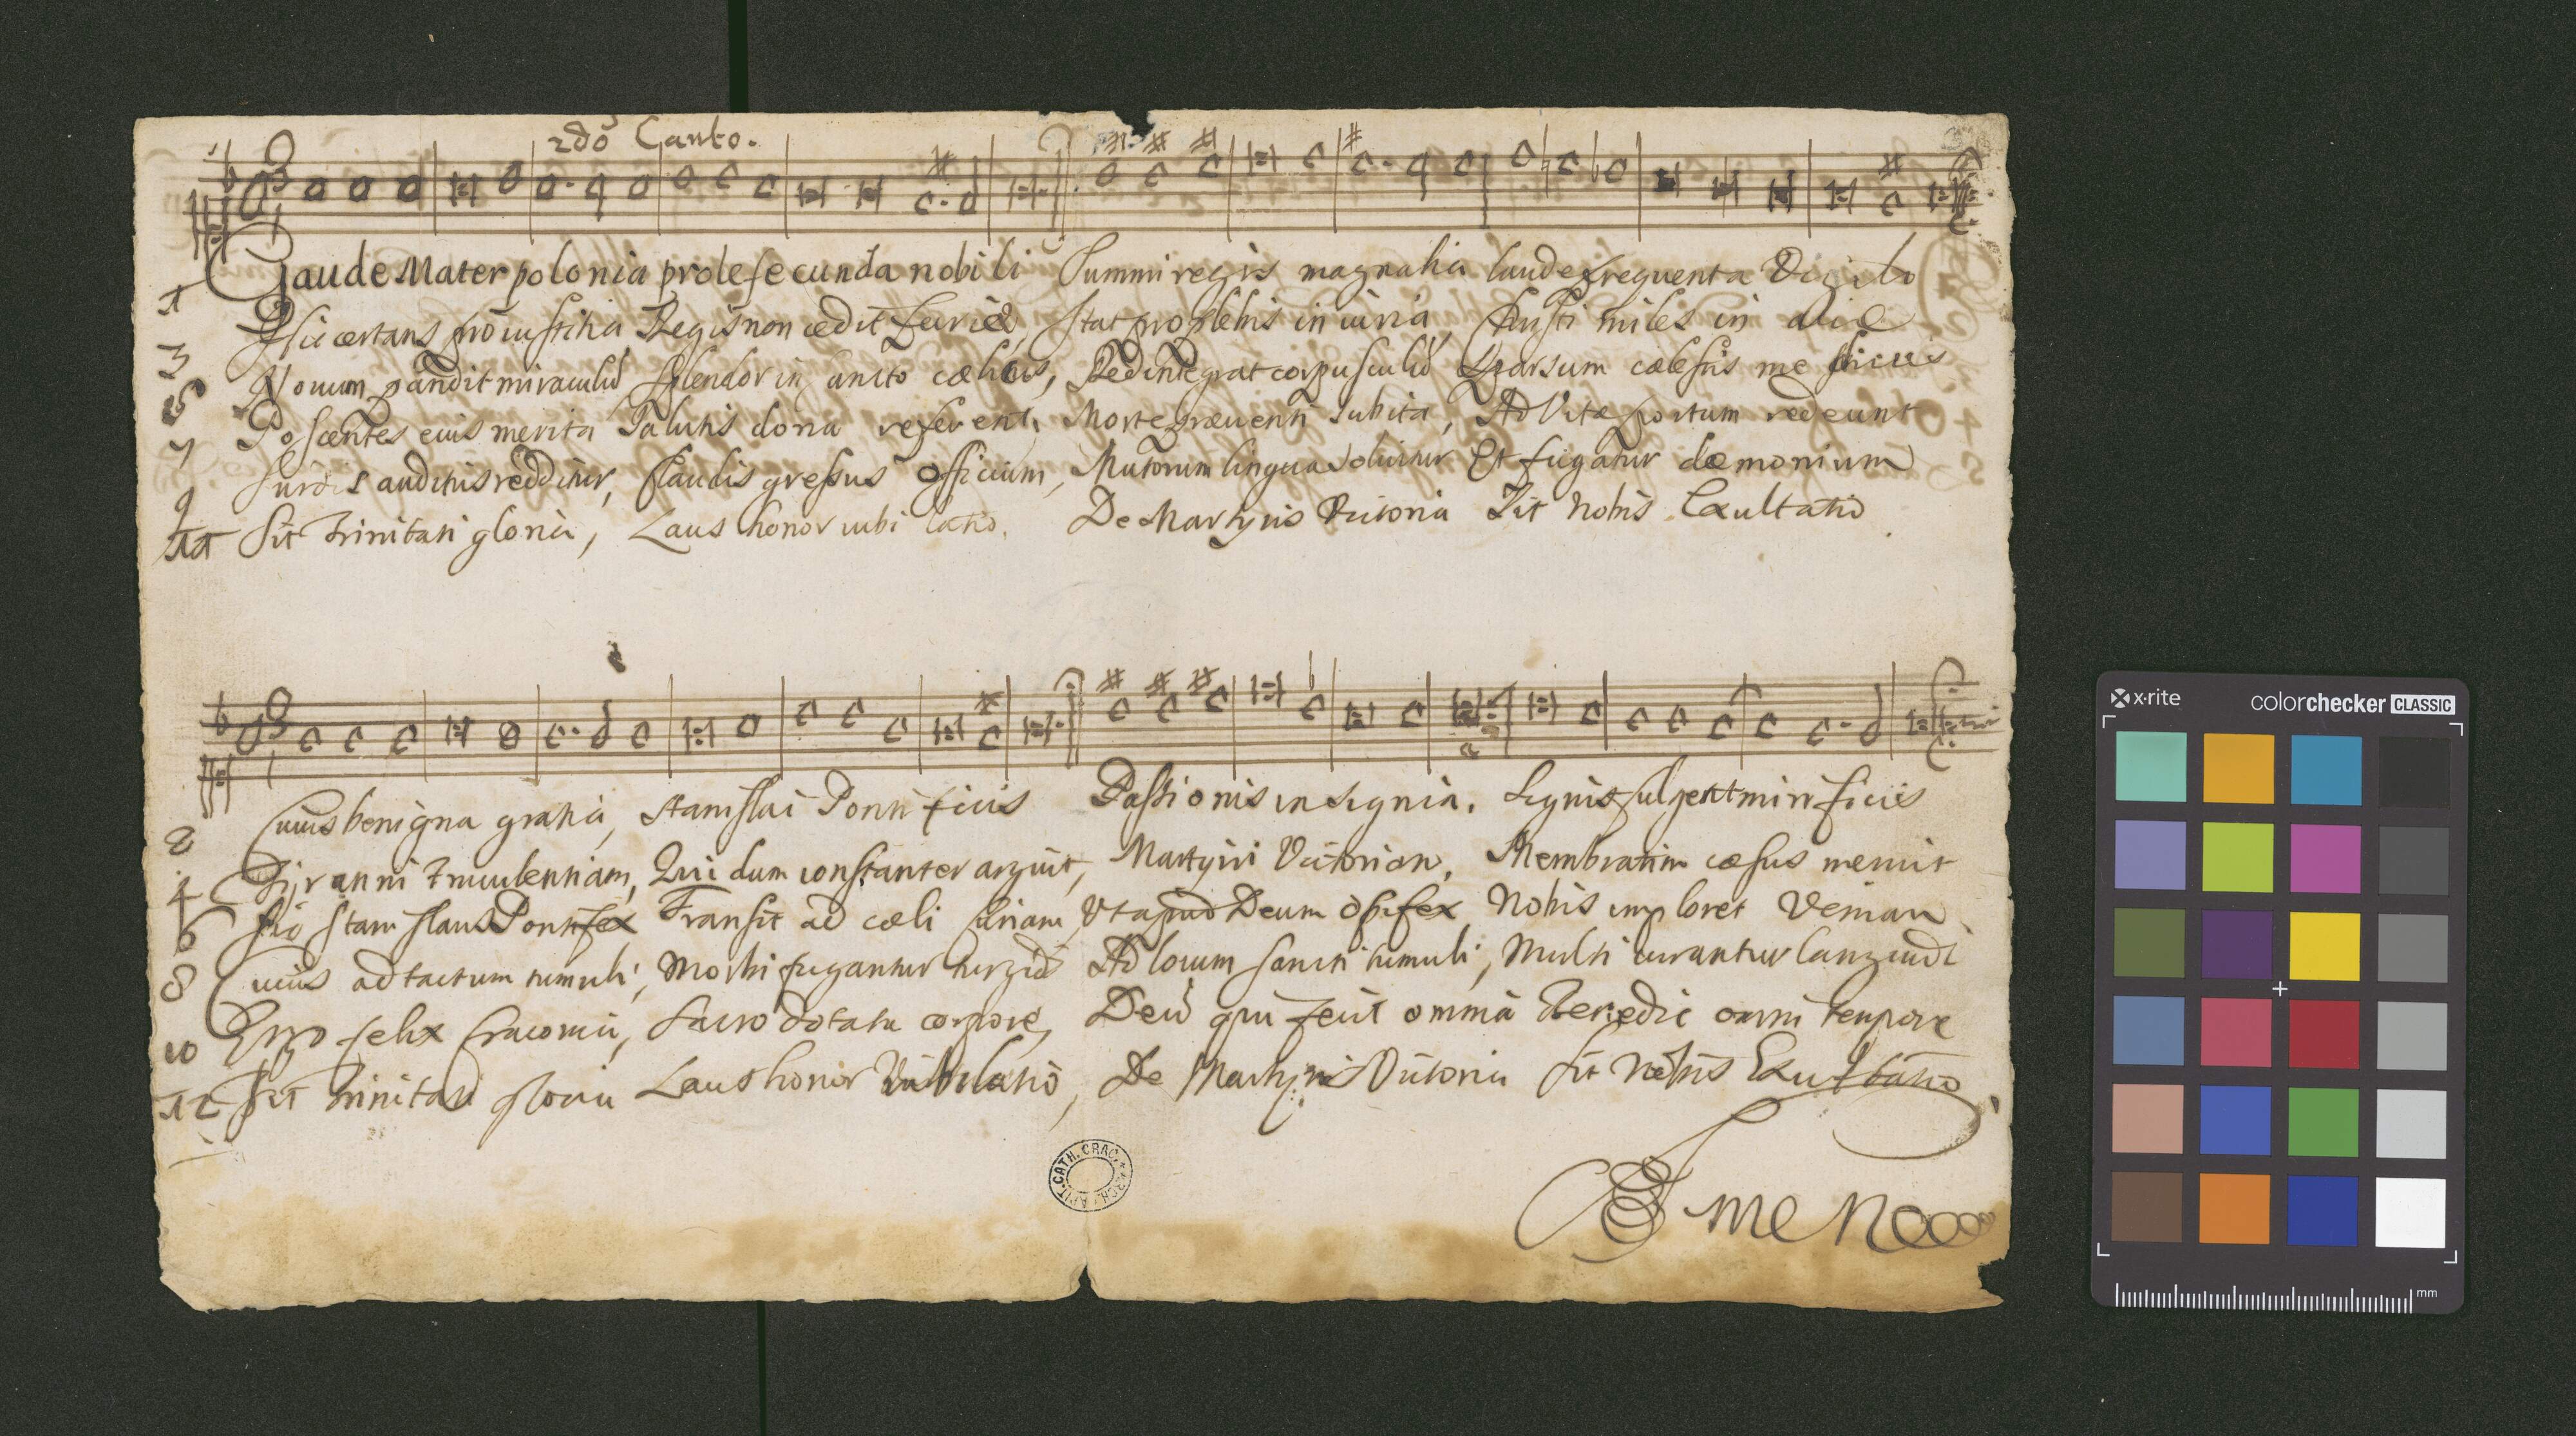 2do Canto.
Gaude Mater polonia prole fecunda nobili Summi regis magnalia laude frequenta Vigilo
1
Hic certans pro iustitia Regis non cedit furiæ, Stat pro plebis iniuria, Christi miles in acie
3
Nouum pandit miraculū Splendor in sancto cælitus, Redintegrat corpusculū Sparsum cælestis medicus
5
Poscentes eius merita Salutis dona referent, Morte præuenti subita, Ad Vitæ portum redeunt
7
Surdis auditus redditur, Claudis gressus officium, Mutorum lingua soluitur Et fugatur dæmonium
9
11 Sit Trinitati gloria, Laus honor iubilatio, De Martyris Victoria Sit Nobis Exultatio.
Cuius benigna gratia, Stanislai Pontificis Passionis insignia, Signis fulgent mirificis
2
Tyranni truculentiam, Qui dum constanter arguit, Martyrii Victoriam, Membratim cæsus meruit
4
Sic Stanislaus Pontifex Transit ad cæli Curiam Vt apud Deum opifex Nobis imploret Veniam
6
8 Cuius ad tactum tumuli, Morbi fugantur turgidi Ad locum sancti tumuli, Multi curantur languidi
Ergo felix Cracouia, Sacro dotata corpore, Deū qui fecit omnia Benedic omni tempore
10
12 Sit Trinitati gloria Laus honor Iubilatio, De Martyris Victoria Sit Nobis Exultatio
Amen
CATH. CRAC.
x-rite colorchecker CLASSIC
mm